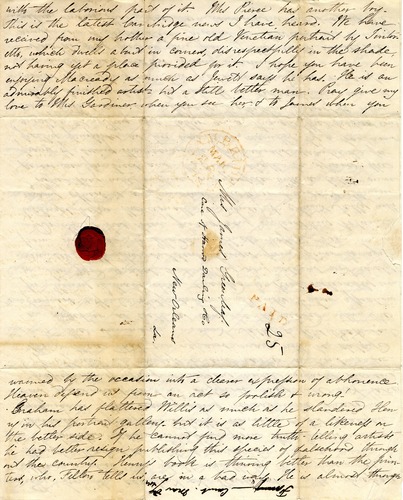 with the laborious part of it Mrs Peirce has another boy.
This is the latest Cambridge news I have heard. We have
received from my mother a fine old Venetian portrait by Tinto
etto, which dwells about in corners, disrespectfully in the shade,
not having yet a place provided for it. I hope you have been
enjoying Macready as much as Jewett says he has. He is an
admirably finished artist & but a still better man. Pray give my
love to Mrs Gardiner when you see her & to James when you
Mrs James Greenleaf
Care of Darling &Co
New Orleans
La.
PAID
25
warmed by the occasion into a clearer expression of abhorrence
Heaven defend us from an act so foolish & wrong!
Graham has flattered Willis as much as he slandered Hen
ry in his portrait gallery but it is as little of a likeness on
the better side. If he cannot find more truth telling artists
he had better resign publishing this species of falsehoods through
out the country. Henry's book is thriving better than the
who, Felton tells us are in a bad way. He is almost through